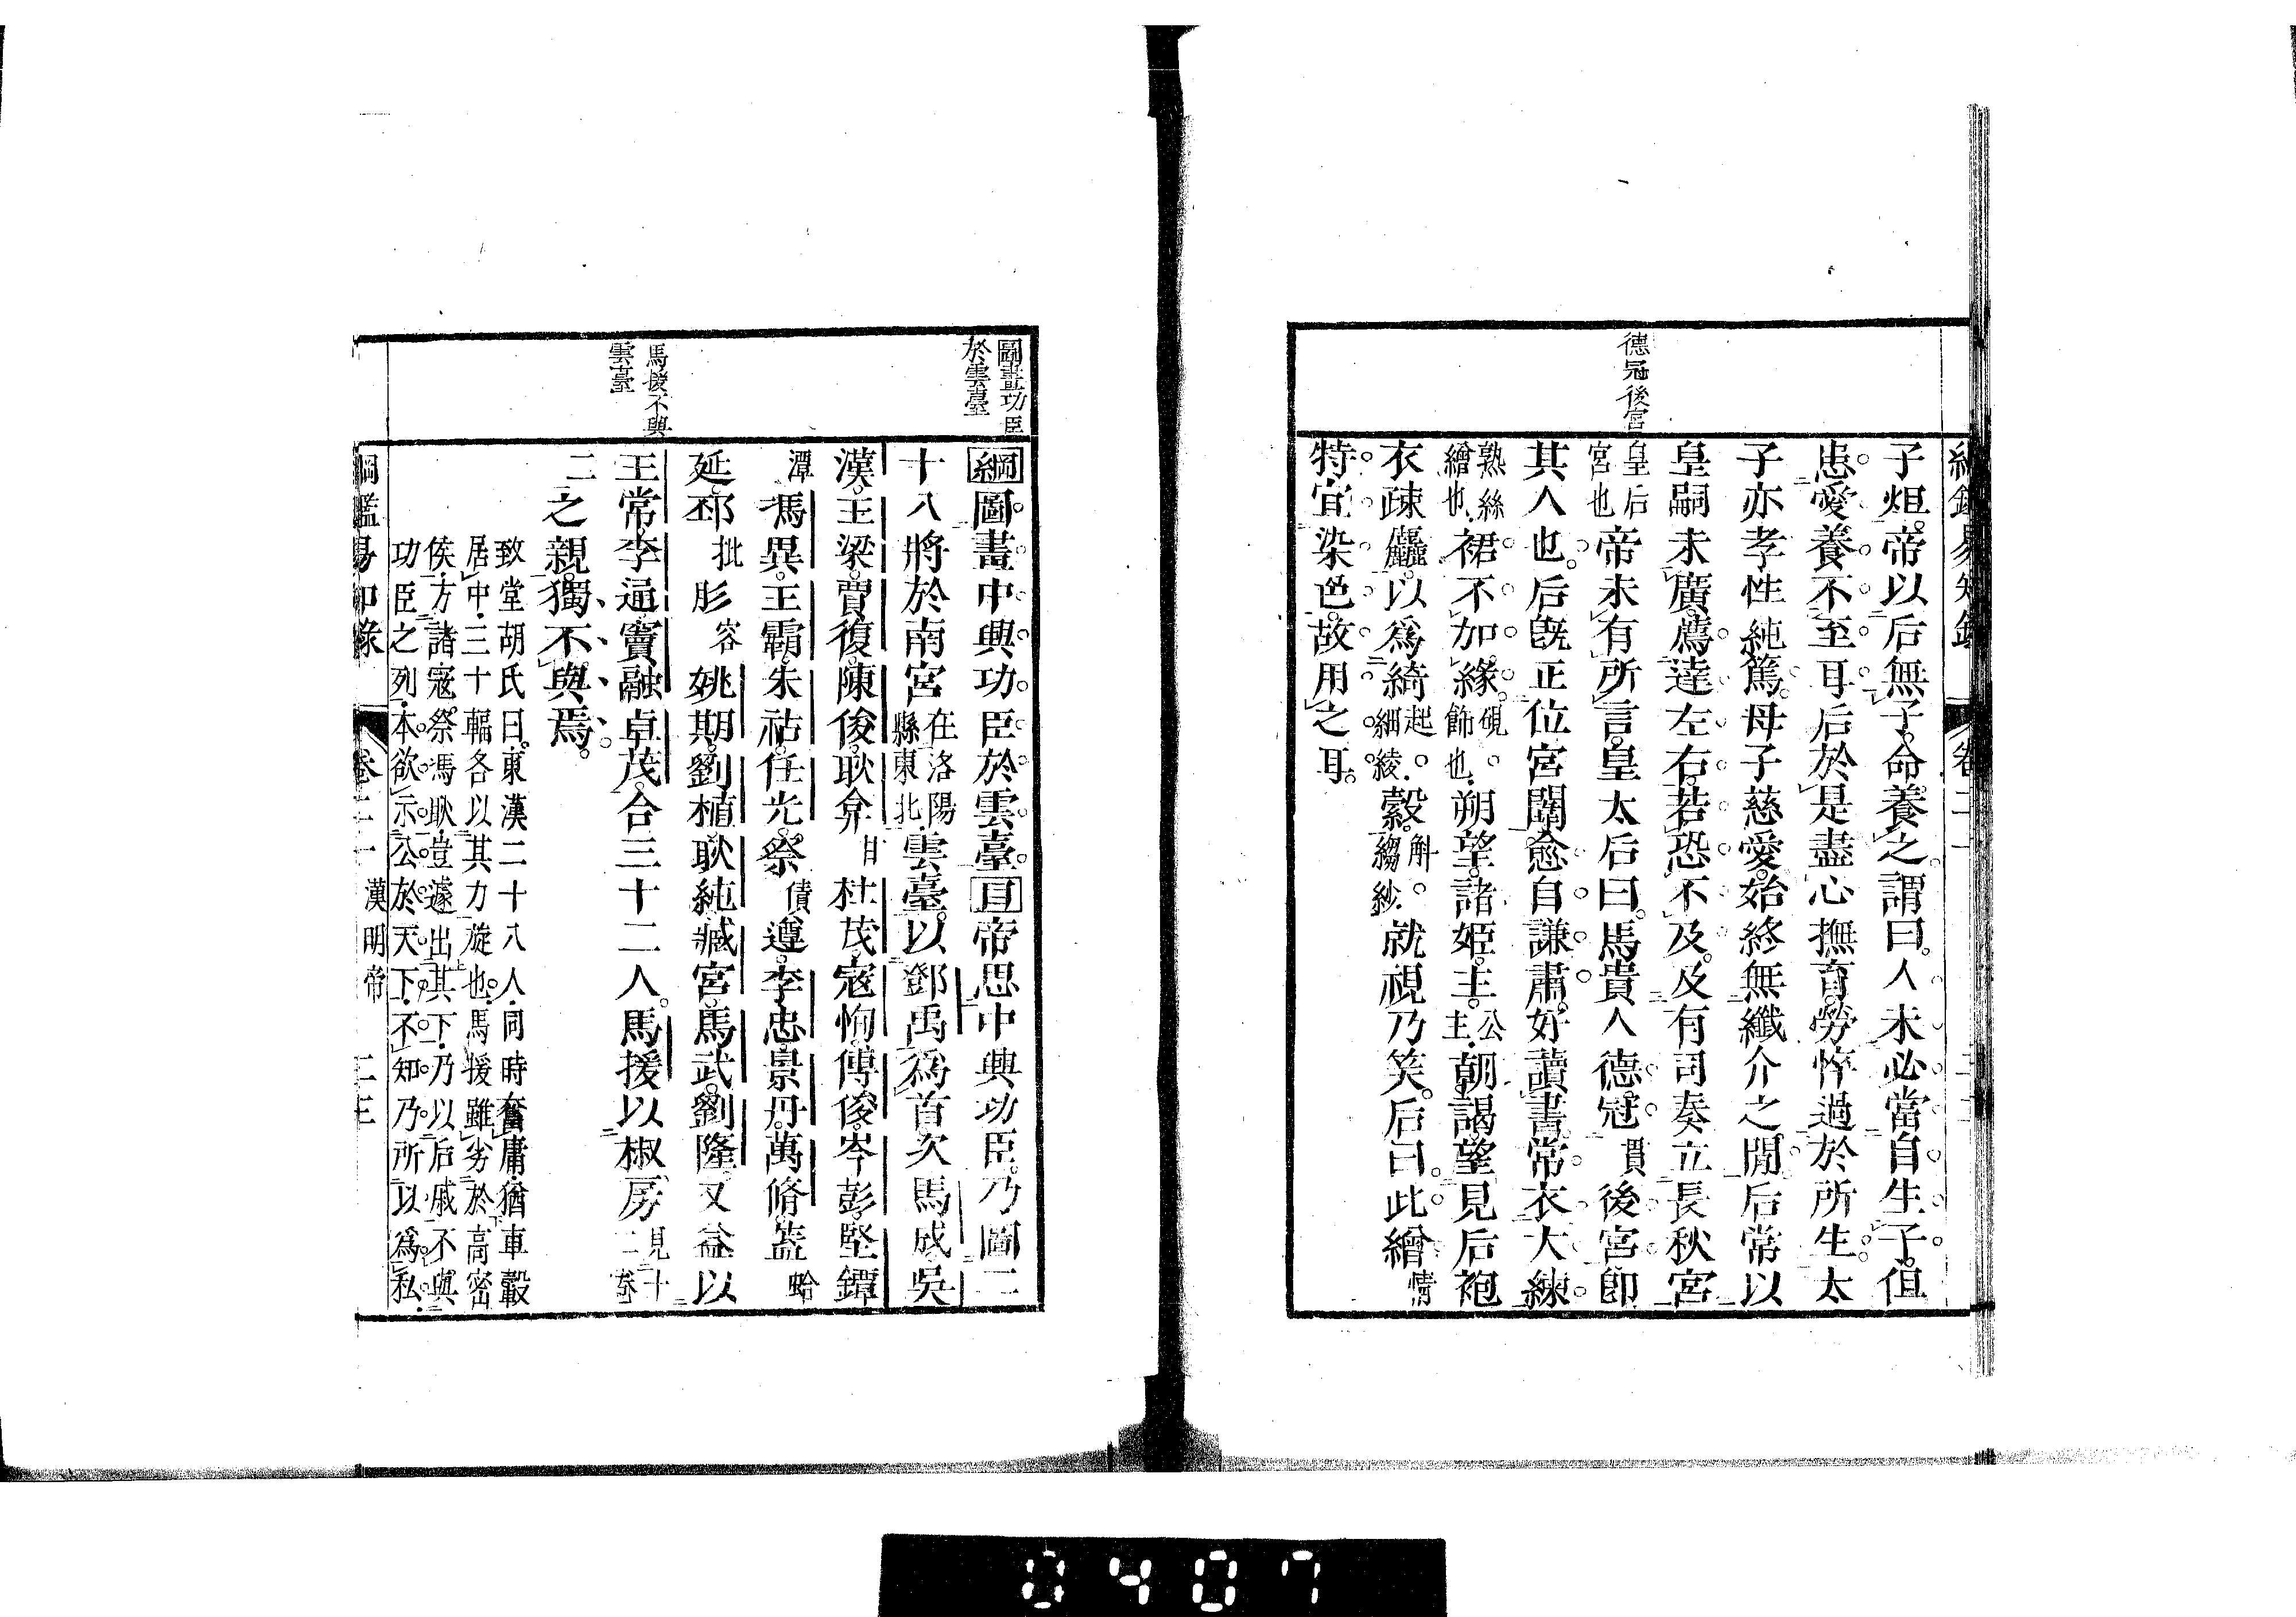 德冠後宮
子炟。帝以后無子。命養之。謂曰。人未必當自生子。但
患愛養不至耳。后於是盡心撫育。勞悴過於所生。太
子亦孝性純篤。母子慈愛。始終無纖介之閒。后常以
皇嗣未廣。薦達左右。若恐不及。及有司奏立長秋宮
皇后
宮也
帝未有所言。皇太后曰。馬貴人德冠
貫
後宮。即
其人也。后旣正位宮闈。愈自謙肅。好讀書。常衣大練
熟絲
繒也。
裙不加緣。
硯。
飾也。
朔望。諸姬。主。
公
主。
朝謁。望見后袍
衣疎麤。以爲綺
起。
細綾。
縠。
斛。
縐紗。
就視乃笑。后曰。此繒
情
特宜染色。故用之耳。
圖畫功臣
於雲臺
馬援不與
雲臺
綱圖畫中興功臣於雲臺。目帝思中興功臣。乃圖二
十八將於南宮
在洛陽
縣東北。
雲臺。以鄧禹爲首。次馬成。吳
漢。王梁。賈復。陳俊。耿弇
甘
杜茂。寇恂。傅俊。岑彭。堅鐔
潭
馮異。王霸。朱祜。任光。祭
債
遵。李忠。景丹。萬脩。蓋
蛤
延。邳
批
肜
容
姚期。劉植。耿純。臧宮。馬武。劉隆。又益以
王常。李通。竇融。卓茂。合三十二人。馬援以椒房
見十
二卷
二
之親。獨不與焉。
致堂胡氏曰。東漢二十八人。同時奮庸。猶車轂
居中。三十輻各以其力旋也。馬援雖劣於高密
侯。方諸寇。祭。馮。耿。豈遽出其下。乃以后戚不與
功臣之列。本欲示公於天下。不知乃所以爲私。
綱鑑易知錄
卷二一
漢明帝
二三